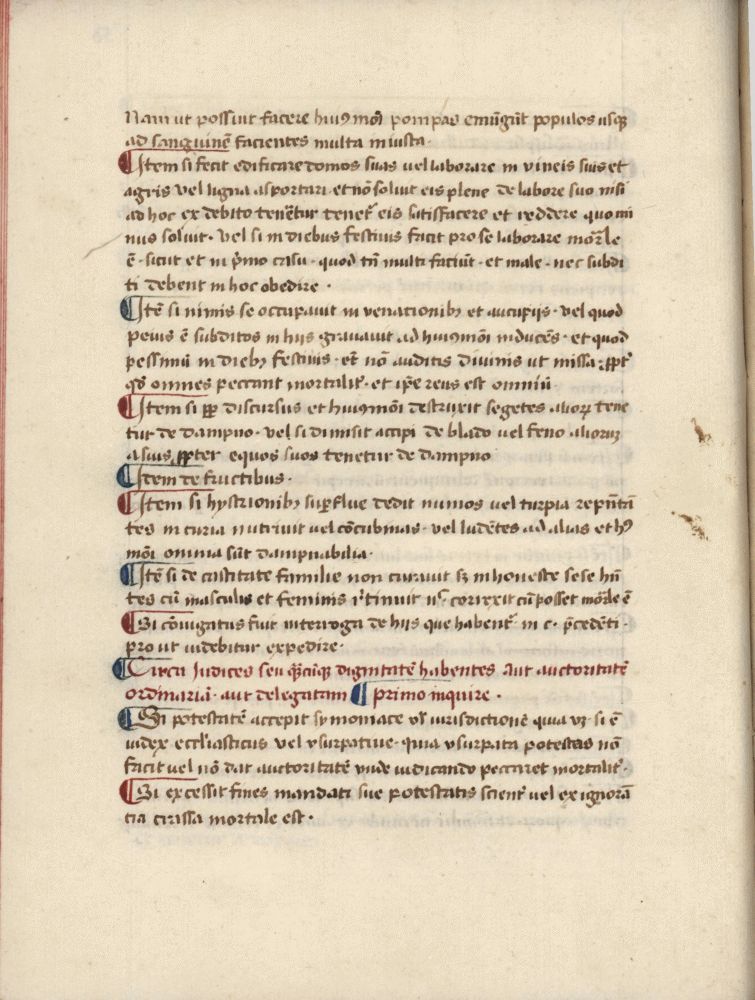 Nam ut possint facere huiꝰmoi pompas emũgũt populos usqꝫ
ad sanguinẽ facientes multa iniusta·
¶ Item si fecit edificare domos suas uel laborare in vineis suis et
agris vel ligna asportari· et nõ soluit eis plene de labore suo nisi
ad hoc ex debito tenẽtur tenet͛ eis satisfacere et reddere quo mi
nus soluit· vel si in diebus festiuis facit pro se laborare mor͛le
ẽ· sicut et in p͛mo casu· quod tñ multi faciũt· et male· nec subdi
ti debent in hoc obedire·
¶ Itẽ si nimis se occupauit in venationibꝫ et aucupijs· vel quod
peius ẽ subditos in hiis grauauit ad huiꝰmõi inducẽs· et quod
pessimũ in diebꝫ festiuis· et͛ nõ auditis diuinis ut missa
qd͛ omnes peccant mortalit͛· et ip̃e reus est omniũ·
¶ Item si ꝓp͛ discursus et huiꝰmõi destruxit segetes alioꝝ tene
tur de dampno· vel si dimisit accipi de blado uel feno aliorum
a suis ꝓpter equos suos tenetur de dampno
¶ Idem de fructibus·
¶ Item si hystrionibꝫ suꝑflue dedit numos uel turpia rep̃ñtã
tes in curia nutriuit uel cõcubinas· vel ludẽtes ad alias et hꝰ
mõi omnia sũt dampnabilia·
¶ Itẽ si de castitate familie non curauit sꝫ inhoneste sese hñ
tes cũ masculis et feminis r͛tinuit n͛ correxit cũ posset mor͛le ẽ
¶ Si cõiugatus fuit interroga de hiis que habent͛ in c· p̃cedẽti·
pro ut uidebitur expedire·
¶ Circa Iudices seu q̃cũqꝫ dignitatẽ habentes aut auctoritatẽ
ordinariã· aut delegatam ¶ primo inquire·
¶ Si potestatẽ accepit symoniace ul͛ iurisdictionẽ quia uꝫ· si ẽ
iudex eccl͛iasticus vel vsurpatiue· quia vsurpata potestas nõ
facit uel nõ dat auctoritatẽ unde iudicando peccaret mortalit͛·
¶ Si excessit fines mandati sue potestatis scient͛ uel ex ignorã
tia crassa mortale est·